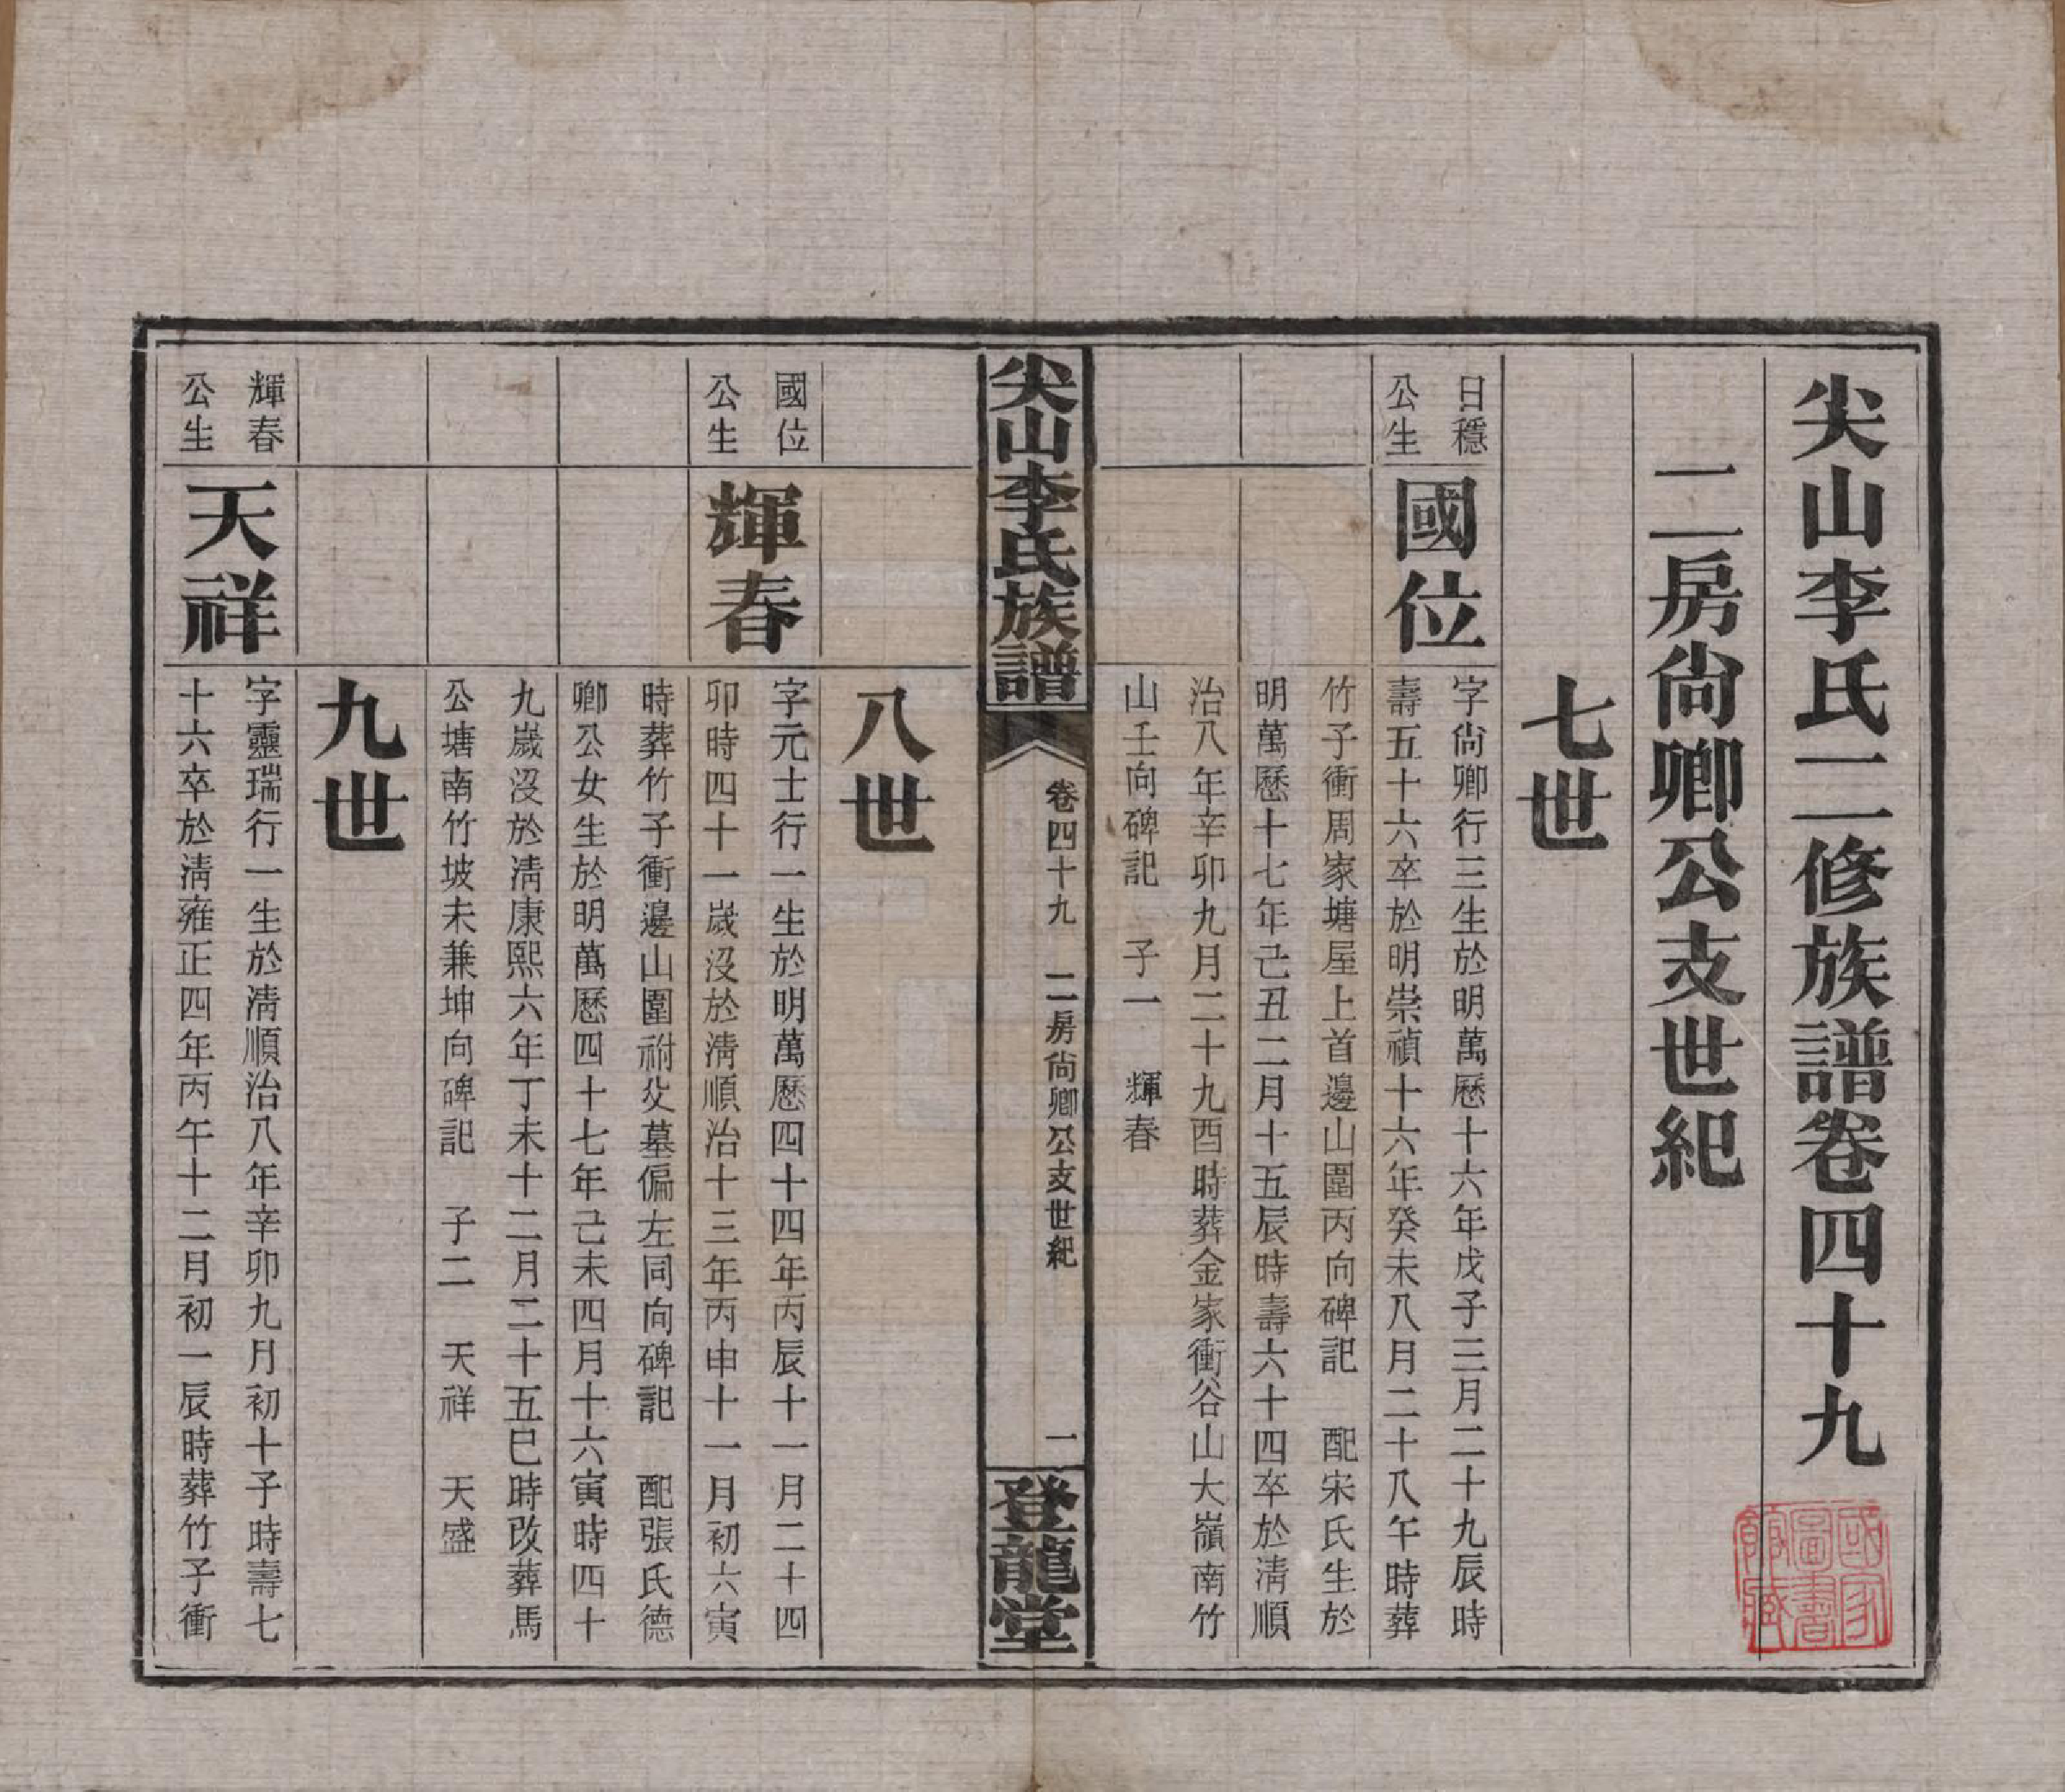 尖山李氏二修族譜卷四十九
二房尙卿公支世紀
七世
日穩
公生
國位
字尙卿行三生於明萬歷十六年戊子三月二十九辰時
壽五十六卒於明崇禎十六年癸未八月二十八午時葬
竹子衝周家塘屋上首邊山圍丙向碑記　配宋氏生於
明萬歷十七年己丑二月十五辰時壽六十四卒於淸順
治八年辛卯九月二十九酉時葬金家衝谷山大嶺南竹
山壬向碑記　子一　輝春
尖山李氏族譜
卷四十九　二房尙卿公支世紀
一
登龍堂
八世
國位
公生
輝春
字元士行一生於明萬歷四十四年丙辰十一月二十四
卯時四十一歲沒於淸順治十三年丙申十一月初六寅
時葬竹子衝邊山圍祔父墓偏左同向碑記　配張氏德
卿公女生於明萬歷四十七年己未四月十六寅時四十
九歲沒於淸康熙六年丁未十二月二十五巳時改葬馬
公塘南竹坡未兼坤向碑記　子二　天祥　天盛
九世
輝春
公生
天祥
字靈瑞行一生於淸順治八年辛卯九月初十子時壽七
十六卒於淸雍正四年丙午十二月初一辰時葬竹子衝
國家
圖書
館藏